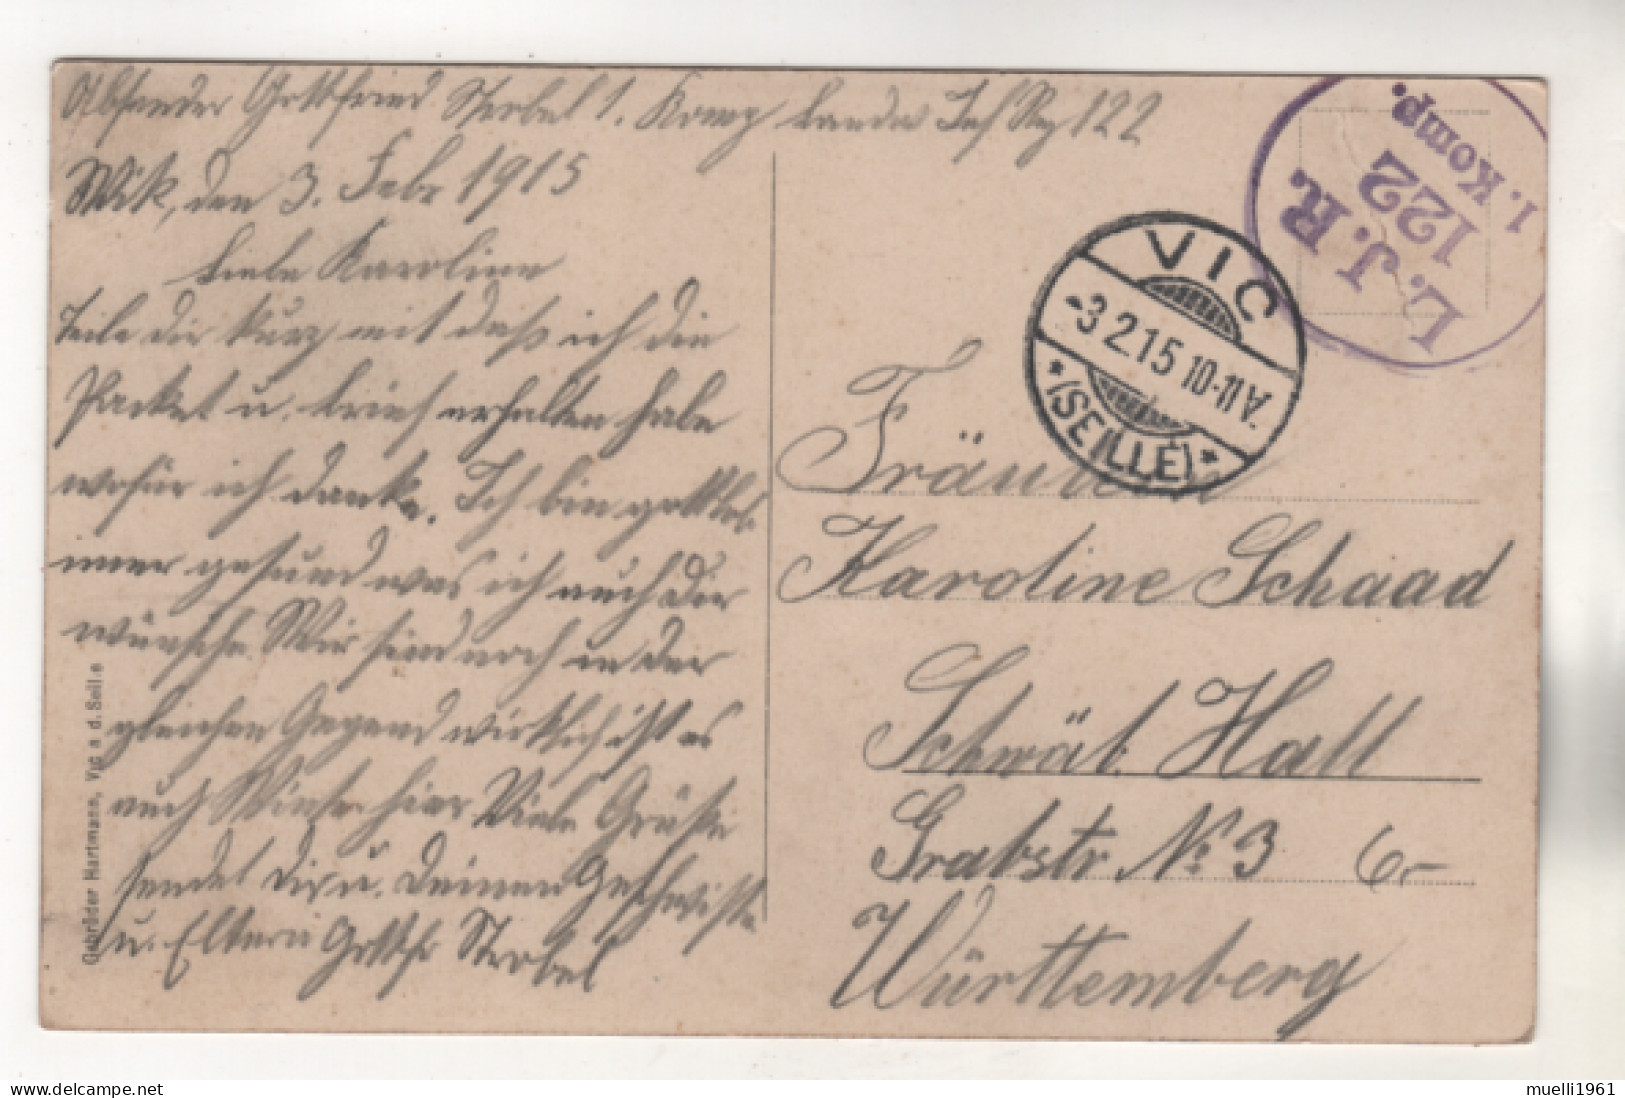 Absender Gottfried Strobel 1. Komp Landw Inf Rg 122
Wik, den 3. Febr 1915
Liebe Karoline
Teile dir kurz mit daß ich die
Packet u. brief erhalten habe
wofür ich danke. Ich bin gottlob
imer gesund was ich auch dir
wünsche Wir sind noch in der
gleichen Gegend wirklich ist es
auch Winter hier Viele Grüße
sendet Dir u. Deinen Geschwister
u. Eltern Gottfr Strobel
Gebrüder Hartmann, Vic a d. Seille
L. J. R.
122
1. Komp.
VIC
-3 2.15 10-11 V.
* (SEILLE) *
Fräulein
Karoline Schaad
Schwäb. Hall
Grabstr No 3 6-
Württemberg
muelli1961